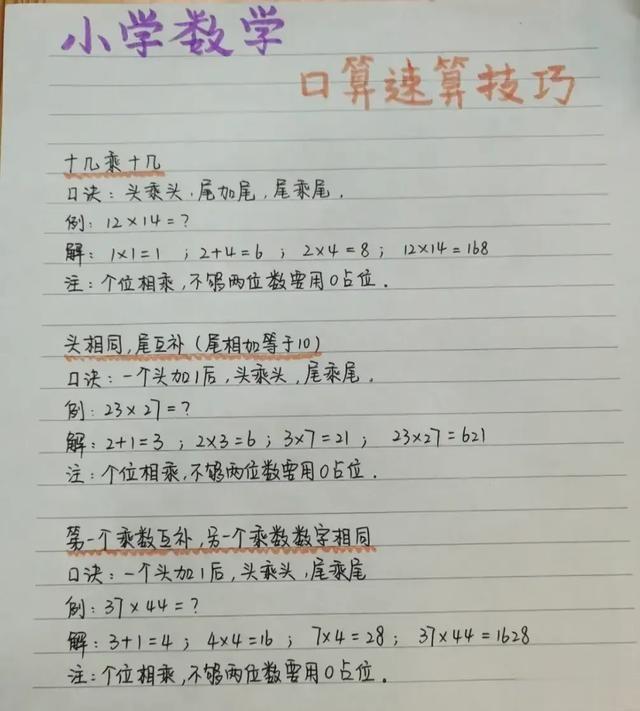 小学数学
口算速算技巧
十几乘十几
口诀：头乘头，尾加尾，尾乘尾．
例：12×14=？
解：1×1=1 ；2+4=6 ；2×4=8； 12×14=168
注：个位相乘，不够两位数要用0占位．
头相同，尾互补（尾相加等于10）
口诀：一个头加1后，头乘头，尾乘尾．
例：23×27=？
解：2+1=3 ；2×3=6；3×7=21； 23×27=621
注：个位相乘，不够两位数要用0占位．
第一个乘数互补，另一个乘数数字相同
口诀：一个头加1后，头乘头，尾乘尾
例：37×44=？
解：3+1=4；4×4=16；7×4=28；37×44=1628
注：个位相乘，不够两位数要用0占位．